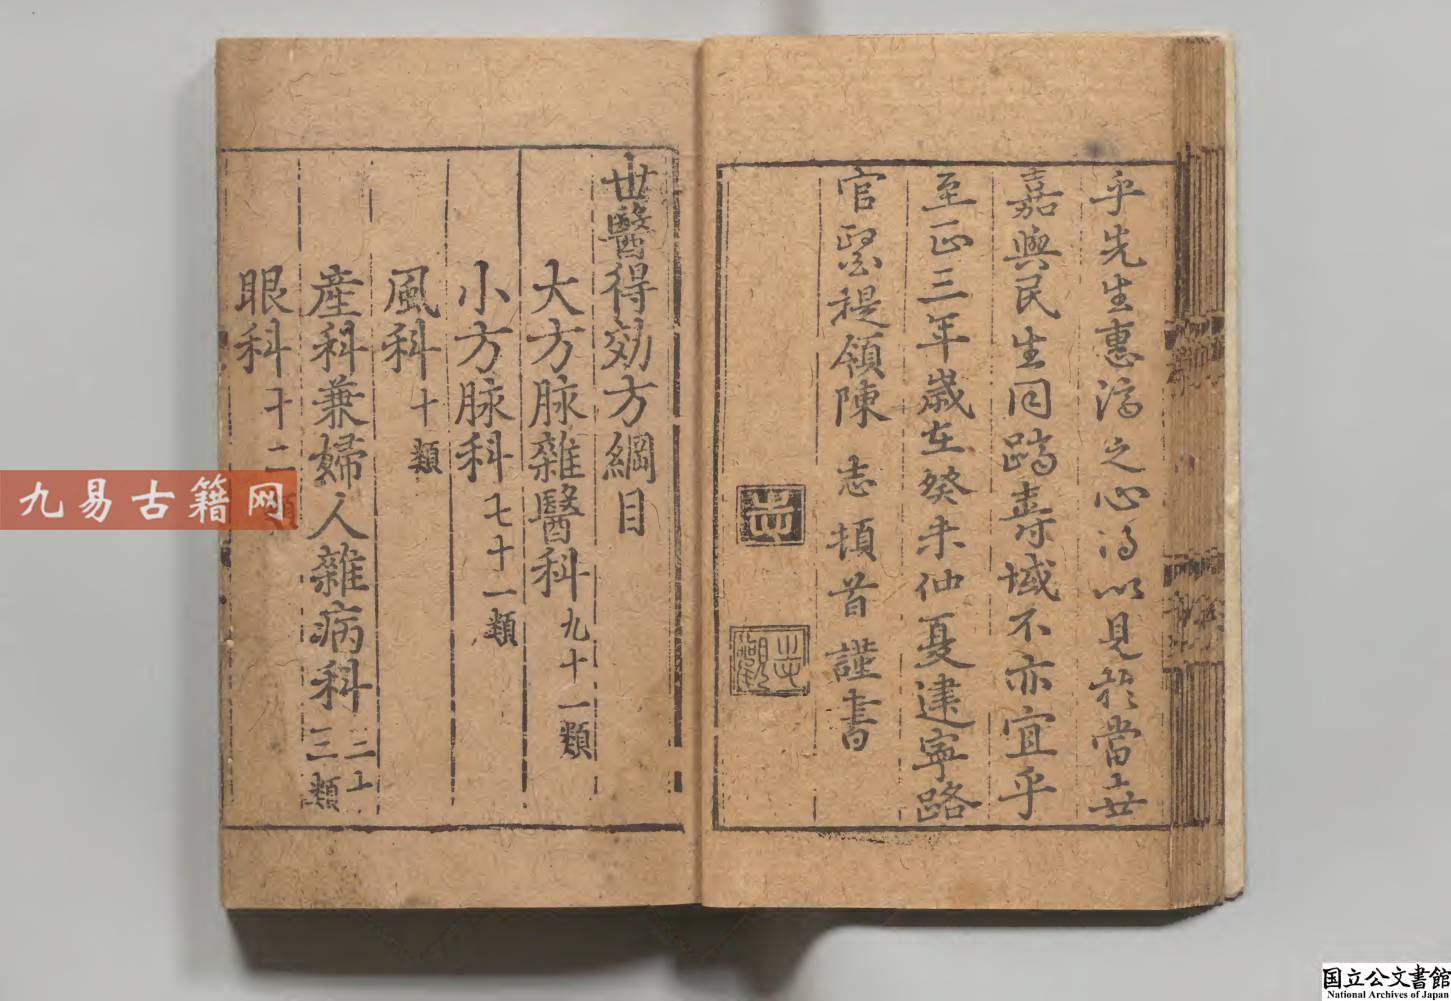 乎先生惠濟之心得以見於當世
嘉與民生同躋壽域不亦宜乎
至正三年歲在癸未仲夏建寧路
官醫提領陳 志 頓首謹書
志
世醫得効方綱目
大方脉雜醫科 九十一類
小方脉科 七十一類
風科 十類
產科兼婦人雜病科 三十三類
眼科 十二類
九易古籍网
国立公文書館
National Archives of Japan